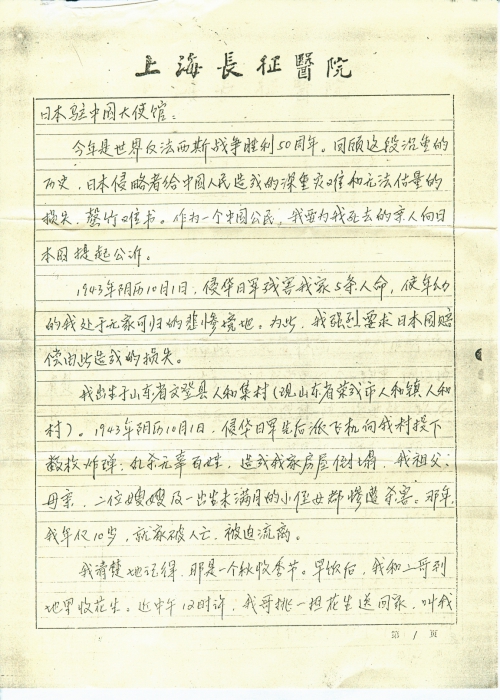 上海長征醫院
日本驻中国大使馆：
今年是世界反法西斯战争胜利50周年。回顾这段沉重的
历史，日本侵略者给中国人民造成的深重灾难和无法估量的
损失，罄竹难书。作为一个中国公民，我要为我死去的亲人向日
本国提起公诉。
1943年阴历10月1日，侵华日军残害我家5条人命，使年幼
的我处于无家可归的悲惨境地。为此，我强烈要求日本国赔
偿由此造成的损失。
我出生于山东省文登县人和集村（现山东省荣成市人和镇人和
村）。1943年阴历10月1日，侵华日军先后派飞机向我村投下
数枚炸弹，轰杀无辜百姓，造成我家房屋倒塌，我祖父、
母亲、二位嫂嫂及一出生未满月的小侄女都惨遭杀害。那年，
我年仅10岁，就家破人亡，被迫流离。
我清楚地记得，那是一个秋收季节。早饭后，我和二哥到
地里收花生。近中午12时许，我哥挑一担花生送回家，叫我
第1页